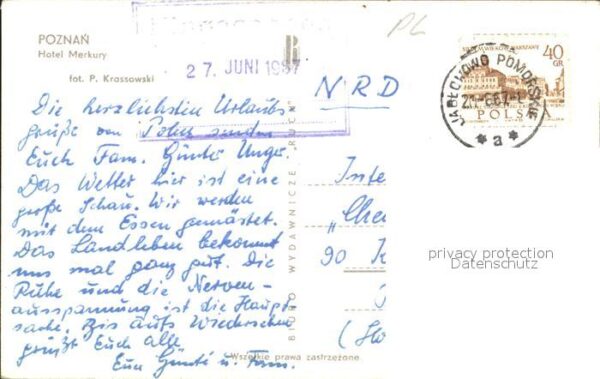 POZNAŃ
Hotel Merkury
fot. P. Krassowski
27. JUNI 1967
PL
NRD
700 WIEKÓW WARSZAWY
40
GR
POLSKA
JABŁECHOWO POMORSKIE
a
Die herzlichsten Urlaubs
grüße von Polen senden
Euch Fam. Günter Unger.
Das Wetter hier ist eine
große Schau. Wir werden
mit dem Essen gemästet.
Das Landleben bekommt
uns mal ganz gut. Die
Ruhe und die Nerven-
ausspannung ist die Haupt
sache. Bis aufs Wiedersehen
grüßt Euch alle
Eure Günter u. Fam.
BIURO WYDAWNICZE „RUCH"
Wszelkie prawa zastrzeżone
Inte
„Che
90 K
privacy protection
Datenschutz